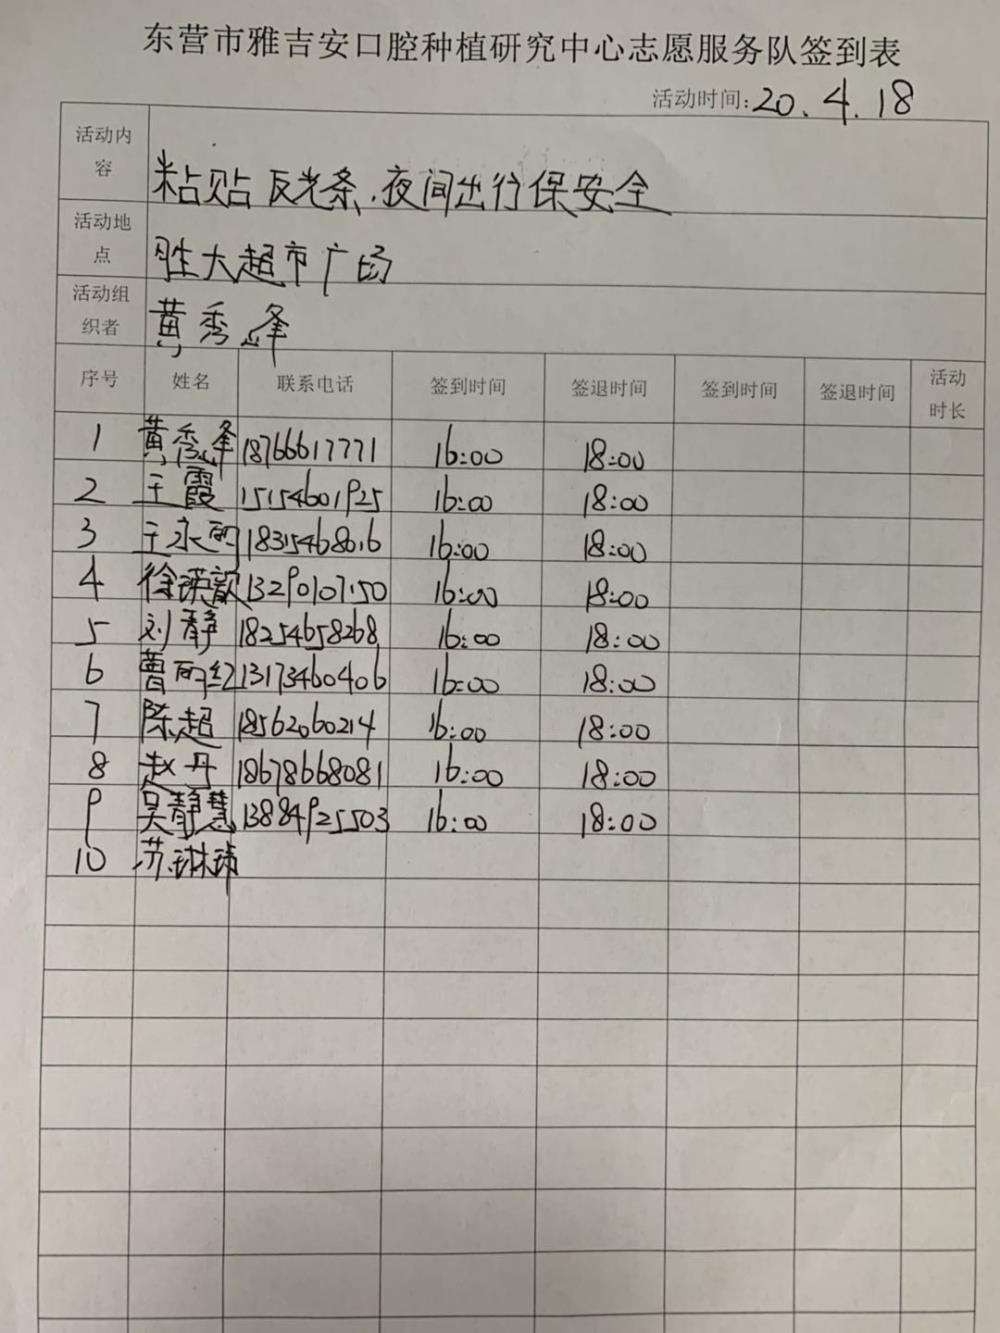 东营市雅吉安口腔种植研究中心志愿服务队签到表
活动时间:20.4.18
活动内容 粘贴反光条.夜间出行保安全
活动地点 胜大超市广场
活动组织者 黄秀峰
序号 姓名 联系电话 签到时间 签退时间 签到时间 签退时间 活动时长
1 黄秀峰 18766617771 16:00 18:00
2 王霞 15154601925 16:00 18:00
3 王永丽 18315468016 16:00 18:00
4 徐瑛歆 13290107150 16:00 18:00
5 刘静 18254658268 16:00 18:00
6 曹丽红 13173460406 16:00 18:00
7 陈超 18562060214 16:00 18:00
8 赵丹 18678668081 16:00 18:00
9 吴静慧 13884925503 16:00 18:00
10 苏琳琳